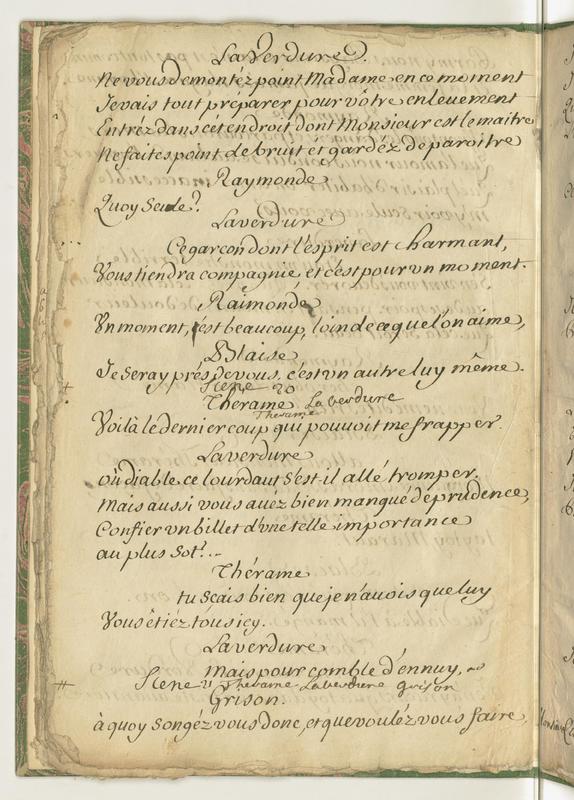 La Verdure.
Ne vous demontéz point Madame en ce moment
Je vais tout préparer pour vôtre enlevement
Entréz dans cét endroit dont Monsieur est le maitre
Ne faites point de bruit et gardéz de paroitre
Raymonde
Quoy seule?
Laverdure
Ce garçon dont l'esprit est charmant,
Vous tiendra compagnie, et c'est pour un moment.
Raimonde
Un moment, c'est beaucoup, loin de ce que l'on aime,
Blaise
Je seray prés de vous, c'est un autre luy même.
Scene 20
Thérame Laverdure
Therame
Voilà le dernier coup qui pouvoit me frapper.
Laverdure
où diable ce lourdaut s'est il allé tromper.
Mais aussi vous avéz bien manqué de prudence,
Confier un billet d'une telle importance
au plus sot?..
Thérame
tu scais bien que je n'avois que luy
Vous êtiéz tous icy.
Laverdure
Mais pour comble d'ennuy,
Scene 21 Therame Laverdure Grison
Grison.
à quoy songéz vous donc, et que voulez vous faire,